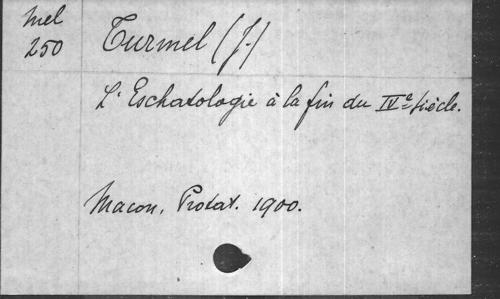 Mel
250
Turmel (J.)
L'Eschatologie à la fin du IVe siècle.
Macon, Protat. 1900.